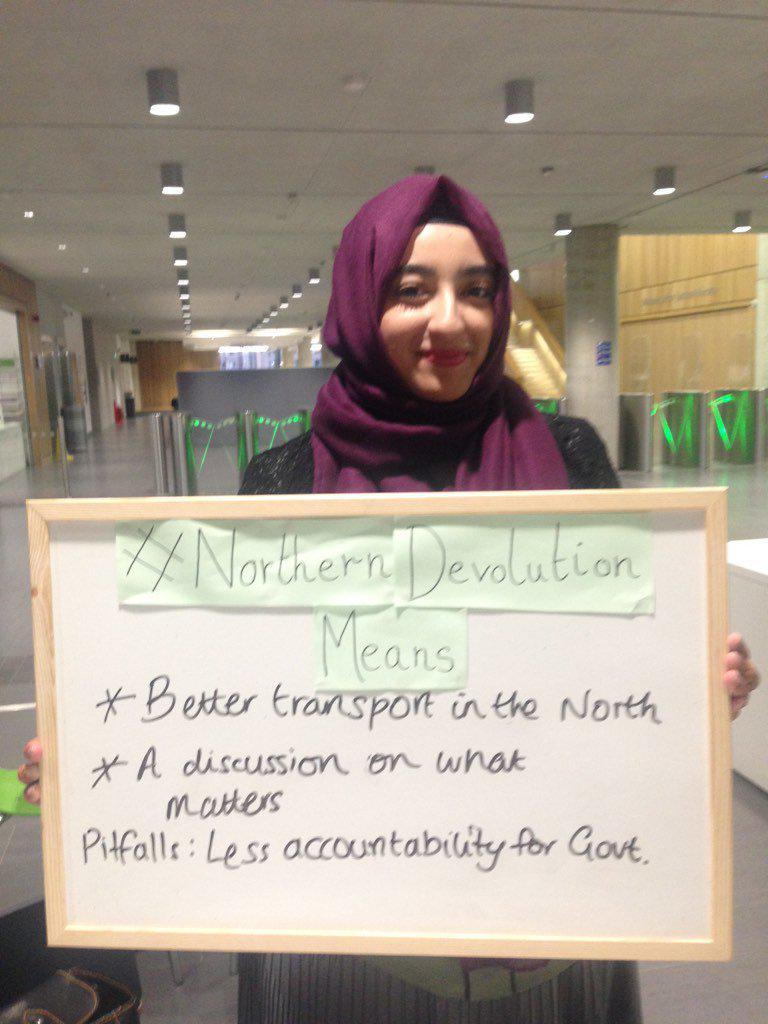 #Northern Devolution
Means
* Better transport in the North
* A discussion on what
matters
Pitfalls: Less accountability for Govt.